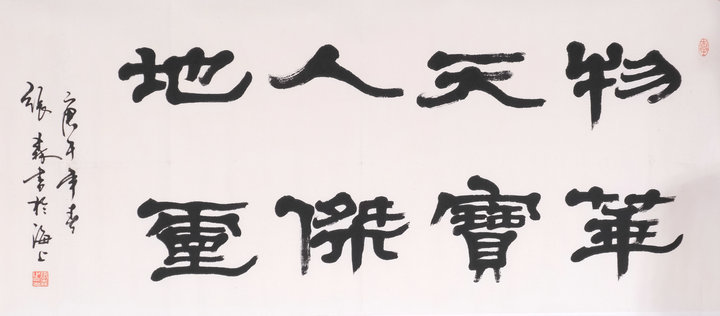 物華
天寶
人傑
地靈
庚午年春
張森書於海上